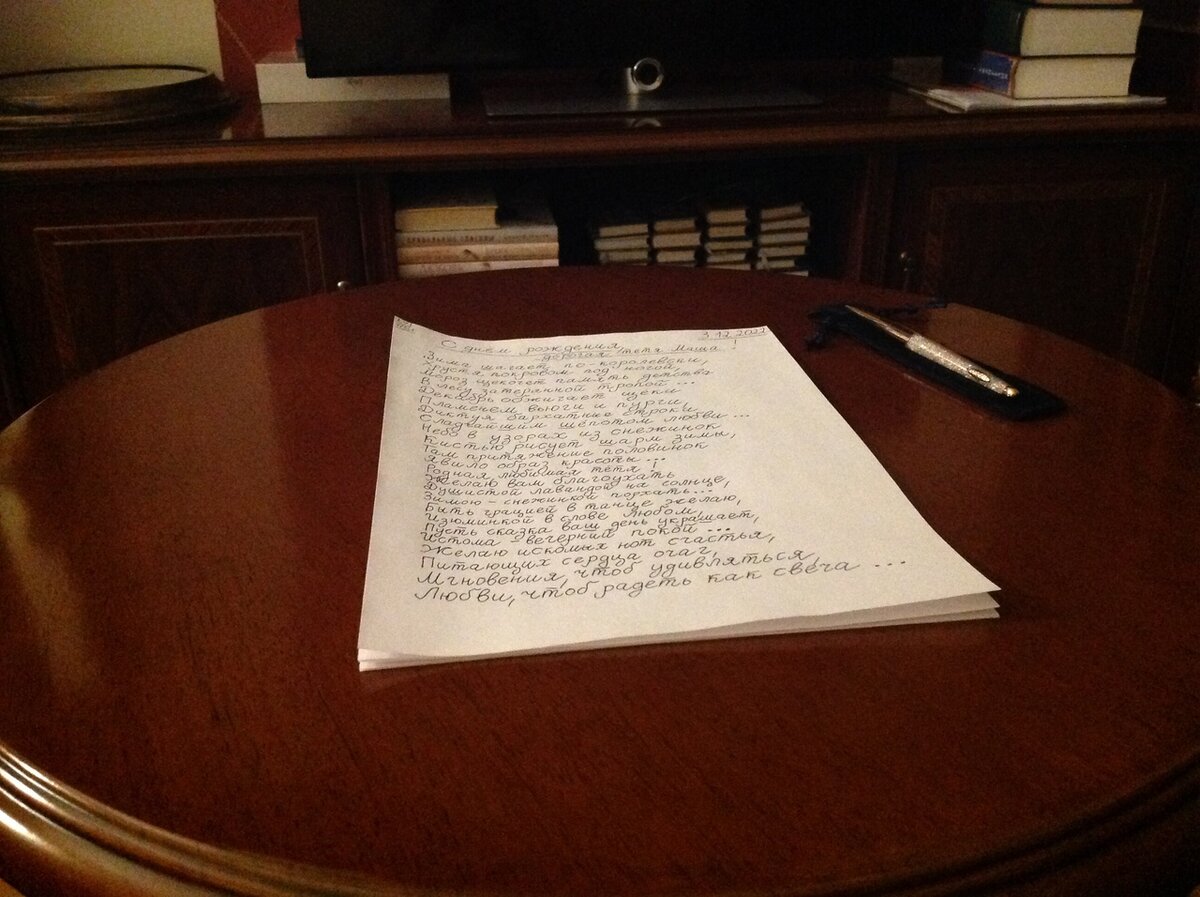 3.12.2022
С днём рождения,
дорогая тётя Маша!
Зима шагает по-королевски,
Хрустя покровом под ногой,
Мороз щекочет память детства
В лесу затерянной тропой ...
Декабрь обжигает щеки
Пламенем вьюги и пурги,
Диктуя бархатные строки
Сладчайшим шепотом любви ...
Небо в узорах из снежинок
Кистью рисует шарм зимы,
Там притяжение половинок
Явило образ красоты ...
Родная любимая тётя!
Желаю вам благоухать
Душистой лавандой на солнце,
Зимою - снежинкой порхать ...
Быть грацией в танце желаю,
Изюминкой в слове любом,
Пусть сказка ваш день украшает,
Истома - вечерний покой ...
Желаю искомых нот счастья,
Питающих сердца очаг,
Мгновения, чтоб удивляться,
Любви, чтоб радеть как свеча ...